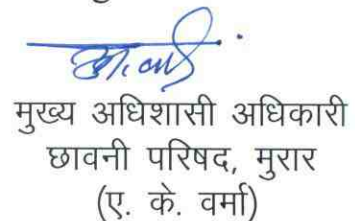 मुख्य अधिशासी अधिकारी
छावनी परिषद, मुरार
(ए. के. वर्मा)